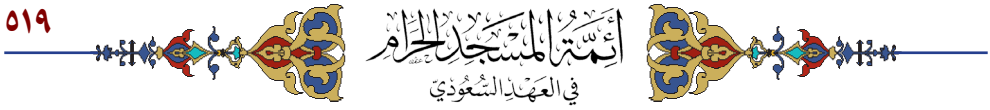 ٥١٩
أَئِمَّةُ المَسْجِدِ الحَرَامِ
فِي العَهْدِ السُّعُودِيّ